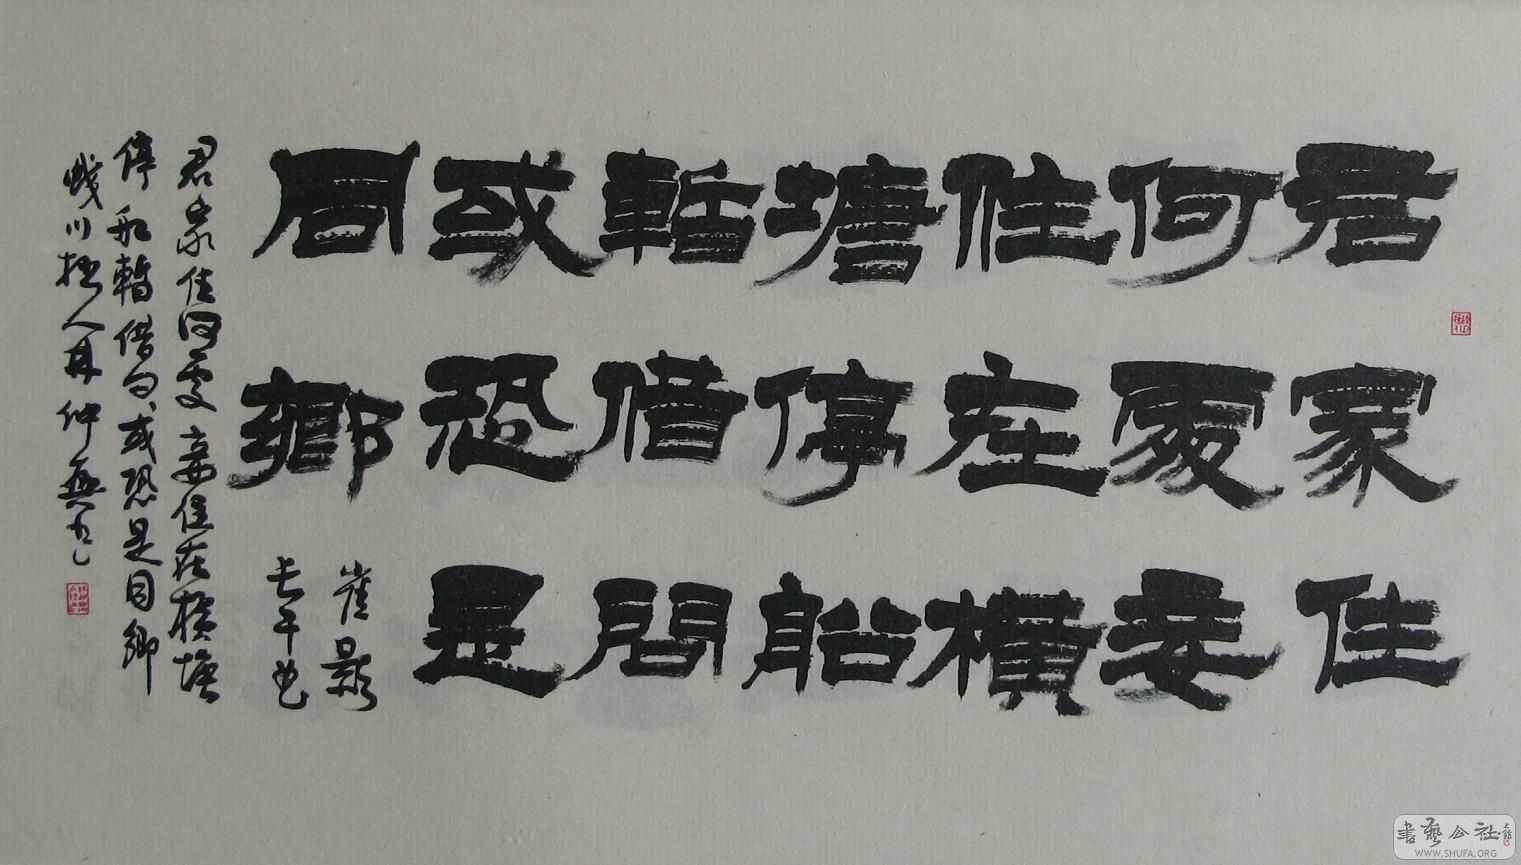 君家住
何處妾
住在橫
塘停船
暫借問
或恐是
同鄉
崔顥
長干曲
君家住何處妾住在橫塘
停船暫借問或恐是同鄉
林仲興書
書藝公社
WWW.SHUFA.ORG